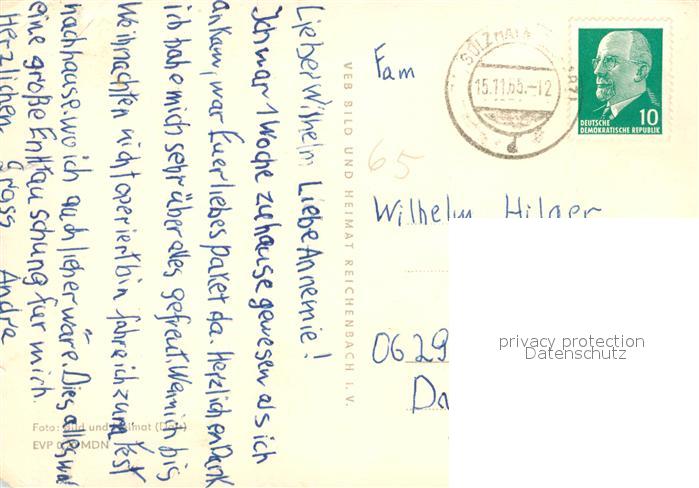 Lieber Wilhelm Liebe Annemie!
Ich war 1 Woche zuhause gewesen als ich
ankam, war Euer liebes Paket da. Herzlichen Dank
ich habe mich sehr über alles gefreut. Wenn ich bis
Weihnachten nicht operiert bin fahre ich zum Fest
nachhause. wo ich auch lieber wäre. Dies alles war
eine große Enttauschung für mich.
Herzlichen grass André
Foto: Bild und Heimat
EVP MDN
VEB BILD UND HEIMAT REICHENBACH I. V.
15.11.65.-12
DEUTSCHE
DEMOKRATISCHE REPUBLIK
10
Fam
65
Wilhelm Hilger
0629
Da
privacy protection
Datenschutz